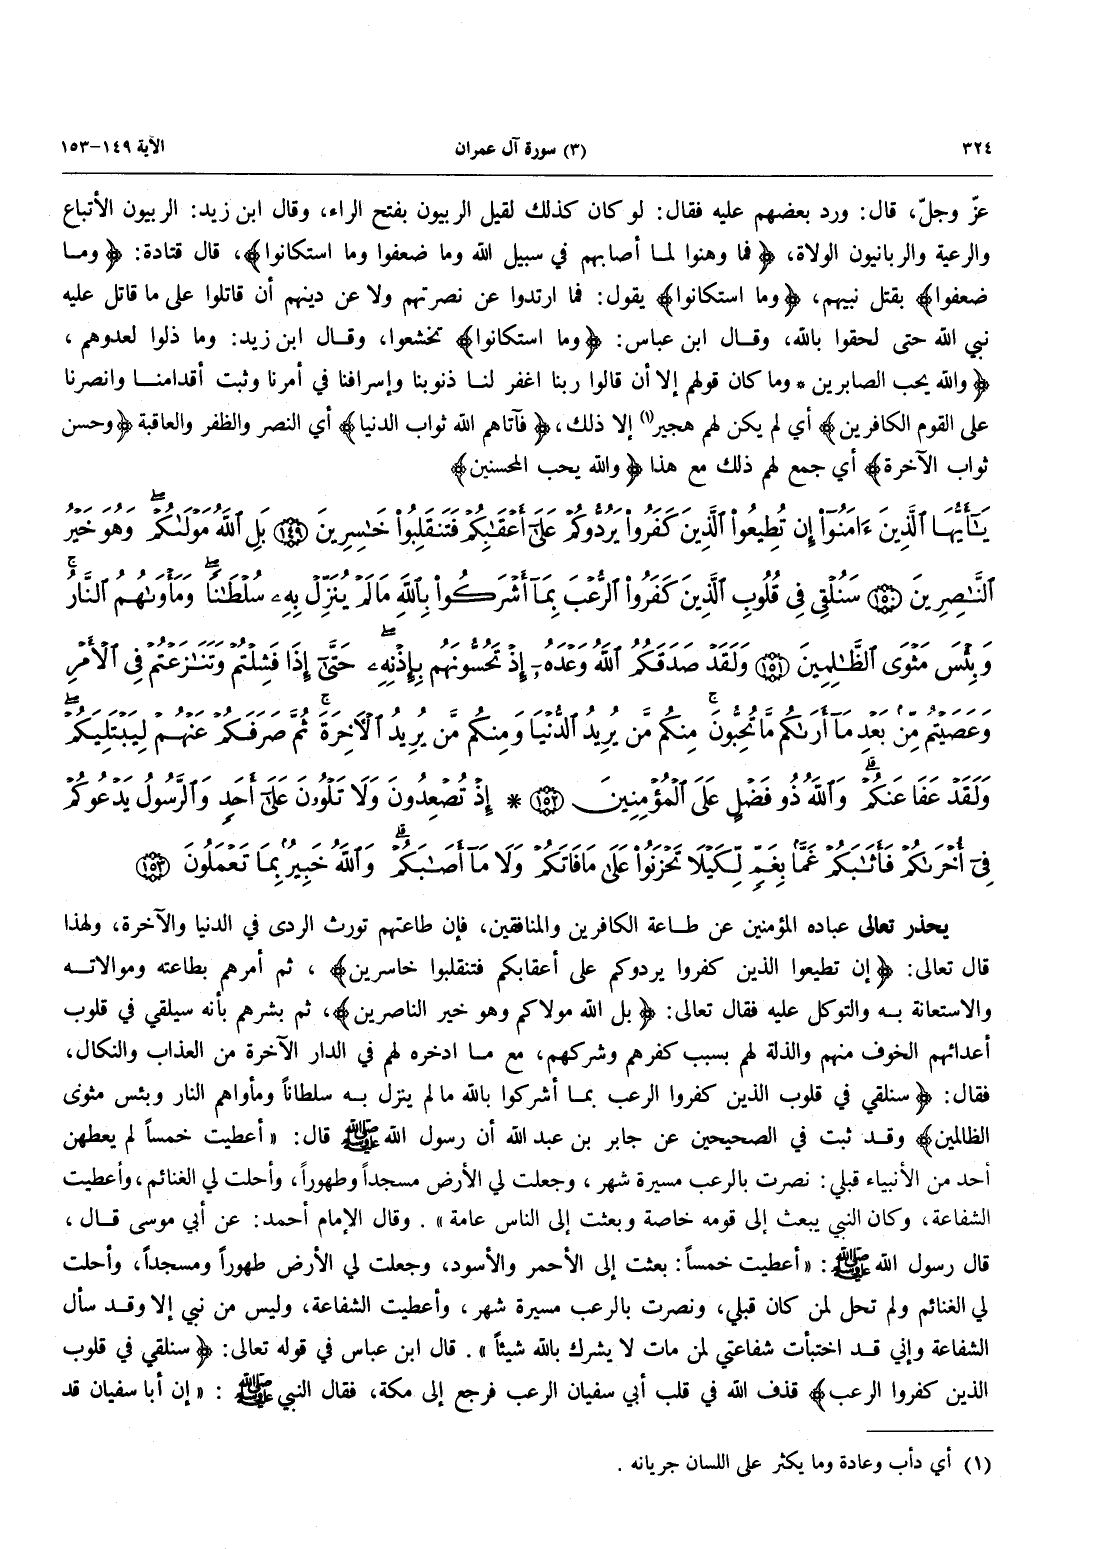 ٣٢٤ (٣) سورة آل عمران الآية ١٤٩-١٥٣
عزّ وجلّ، قال: ورد بعضهم عليه فقال: لو كان كذلك لقيل الربيون بفتح الراء، وقال ابن زيد: الربيون الأتباع
والرعية والربانيون الولاة، ﴿فما وهنوا لما أصابهم في سبيل الله وما ضعفوا وما استكانوا﴾، قال قتادة: ﴿وما
ضعفوا﴾ بقتل نبيهم، ﴿وما استكانوا﴾ يقول: فما ارتدوا عن نصرتهم ولا عن دينهم أن قاتلوا على ما قاتل عليه
نبي الله حتى لحقوا بالله، وقال ابن عباس: ﴿وما استكانوا﴾ تخشعوا، وقال ابن زيد: وما ذلوا لعدوهم،
﴿والله يحب الصابرين * وما كان قولهم إلا أن قالوا ربنا اغفر لنا ذنوبنا وإسرافنا في أمرنا وثبت أقدامنا وانصرنا
على القوم الكافرين﴾ أي لم يكن لهم هجير(١) إلا ذلك، ﴿فآتاهم الله ثواب الدنيا﴾ أي النصر والظفر والعاقبة ﴿وحسن
ثواب الآخرة﴾ أي جمع لهم ذلك مع هذا ﴿والله يحب المحسنين﴾
يَٰٓأَيُّهَا ٱلَّذِينَ ءَامَنُوٓا۟ إِن تُطِيعُوا۟ ٱلَّذِينَ كَفَرُوا۟ يَرُدُّوكُمْ عَلَىٰٓ أَعْقَٰبِكُمْ فَتَنقَلِبُوا۟ خَٰسِرِينَ ۝١٤٩ بَلِ ٱللَّهُ مَوْلَىٰكُمْ ۖ وَهُوَ خَيْرُ
ٱلنَّٰصِرِينَ ۝١٥٠ سَنُلْقِى فِى قُلُوبِ ٱلَّذِينَ كَفَرُوا۟ ٱلرُّعْبَ بِمَآ أَشْرَكُوا۟ بِٱللَّهِ مَا لَمْ يُنَزِّلْ بِهِۦ سُلْطَٰنًا ۖ وَمَأْوَىٰهُمُ ٱلنَّارُ ۚ
وَبِئْسَ مَثْوَى ٱلظَّٰلِمِينَ ۝١٥١ وَلَقَدْ صَدَقَكُمُ ٱللَّهُ وَعْدَهُۥٓ إِذْ تَحُسُّونَهُم بِإِذْنِهِۦ ۖ حَتَّىٰٓ إِذَا فَشِلْتُمْ وَتَنَٰزَعْتُمْ فِى ٱلْأَمْرِ
وَعَصَيْتُم مِّنۢ بَعْدِ مَآ أَرَىٰكُم مَّا تُحِبُّونَ ۚ مِنكُم مَّن يُرِيدُ ٱلدُّنْيَا وَمِنكُم مَّن يُرِيدُ ٱلْءَاخِرَةَ ۚ ثُمَّ صَرَفَكُمْ عَنْهُمْ لِيَبْتَلِيَكُمْ ۖ
وَلَقَدْ عَفَا عَنكُمْ ۗ وَٱللَّهُ ذُو فَضْلٍ عَلَى ٱلْمُؤْمِنِينَ ۝١٥٢ * إِذْ تُصْعِدُونَ وَلَا تَلْوُۥنَ عَلَىٰٓ أَحَدٍ وَٱلرَّسُولُ يَدْعُوكُمْ
فِىٓ أُخْرَىٰكُمْ فَأَثَٰبَكُمْ غَمًّۢا بِغَمٍّ لِّكَيْلَا تَحْزَنُوا۟ عَلَىٰ مَا فَاتَكُمْ وَلَا مَآ أَصَٰبَكُمْ ۗ وَٱللَّهُ خَبِيرٌۢ بِمَا تَعْمَلُونَ ۝١٥٣
يحذر تعالى عباده المؤمنين عن طاعة الكافرين والمنافقين، فإن طاعتهم تورث الردى في الدنيا والآخرة، ولهذا
قال تعالى: ﴿إن تطيعوا الذين كفروا يردوكم على أعقابكم فتنقلبوا خاسرين﴾، ثم أمرهم بطاعته وموالاته
والاستعانة به والتوكل عليه فقال تعالى: ﴿بل الله مولاكم وهو خير الناصرين﴾، ثم بشرهم بأنه سيلقي في قلوب
أعدائهم الخوف منهم والذلة لهم بسبب كفرهم وشركهم، مع ما ادخره لهم في الدار الآخرة من العذاب والنكال،
فقال: ﴿سنلقي في قلوب الذين كفروا الرعب بما أشركوا بالله ما لم ينزل به سلطاناً ومأواهم النار وبئس مثوى
الظالمين﴾ وقد ثبت في الصحيحين عن جابر بن عبد الله أن رسول الله ﷺ قال: «أعطيت خمساً لم يعطهن
أحد من الأنبياء قبلي: نصرت بالرعب مسيرة شهر، وجعلت لي الأرض مسجداً وطهوراً، وأحلت لي الغنائم، وأعطيت
الشفاعة، وكان النبي يبعث إلى قومه خاصة وبعثت إلى الناس عامة». وقال الإمام أحمد: عن أبي موسى قال،
قال رسول الله ﷺ: «أعطيت خمساً: بعثت إلى الأحمر والأسود، وجعلت لي الأرض طهوراً ومسجداً، وأحلت
لي الغنائم ولم تحل لمن كان قبلي، ونصرت بالرعب مسيرة شهر، وأعطيت الشفاعة، وليس من نبي إلا وقد سأل
الشفاعة وإني قد اختبأت شفاعتي لمن مات لا يشرك بالله شيئاً». قال ابن عباس في قوله تعالى: ﴿سنلقي في قلوب
الذين كفروا الرعب﴾ قذف الله في قلب أبي سفيان الرعب فرجع إلى مكة، فقال النبي ﷺ: «إن أبا سفيان قد
(١) أي دأب وعادة وما يكثر على اللسان جريانه.